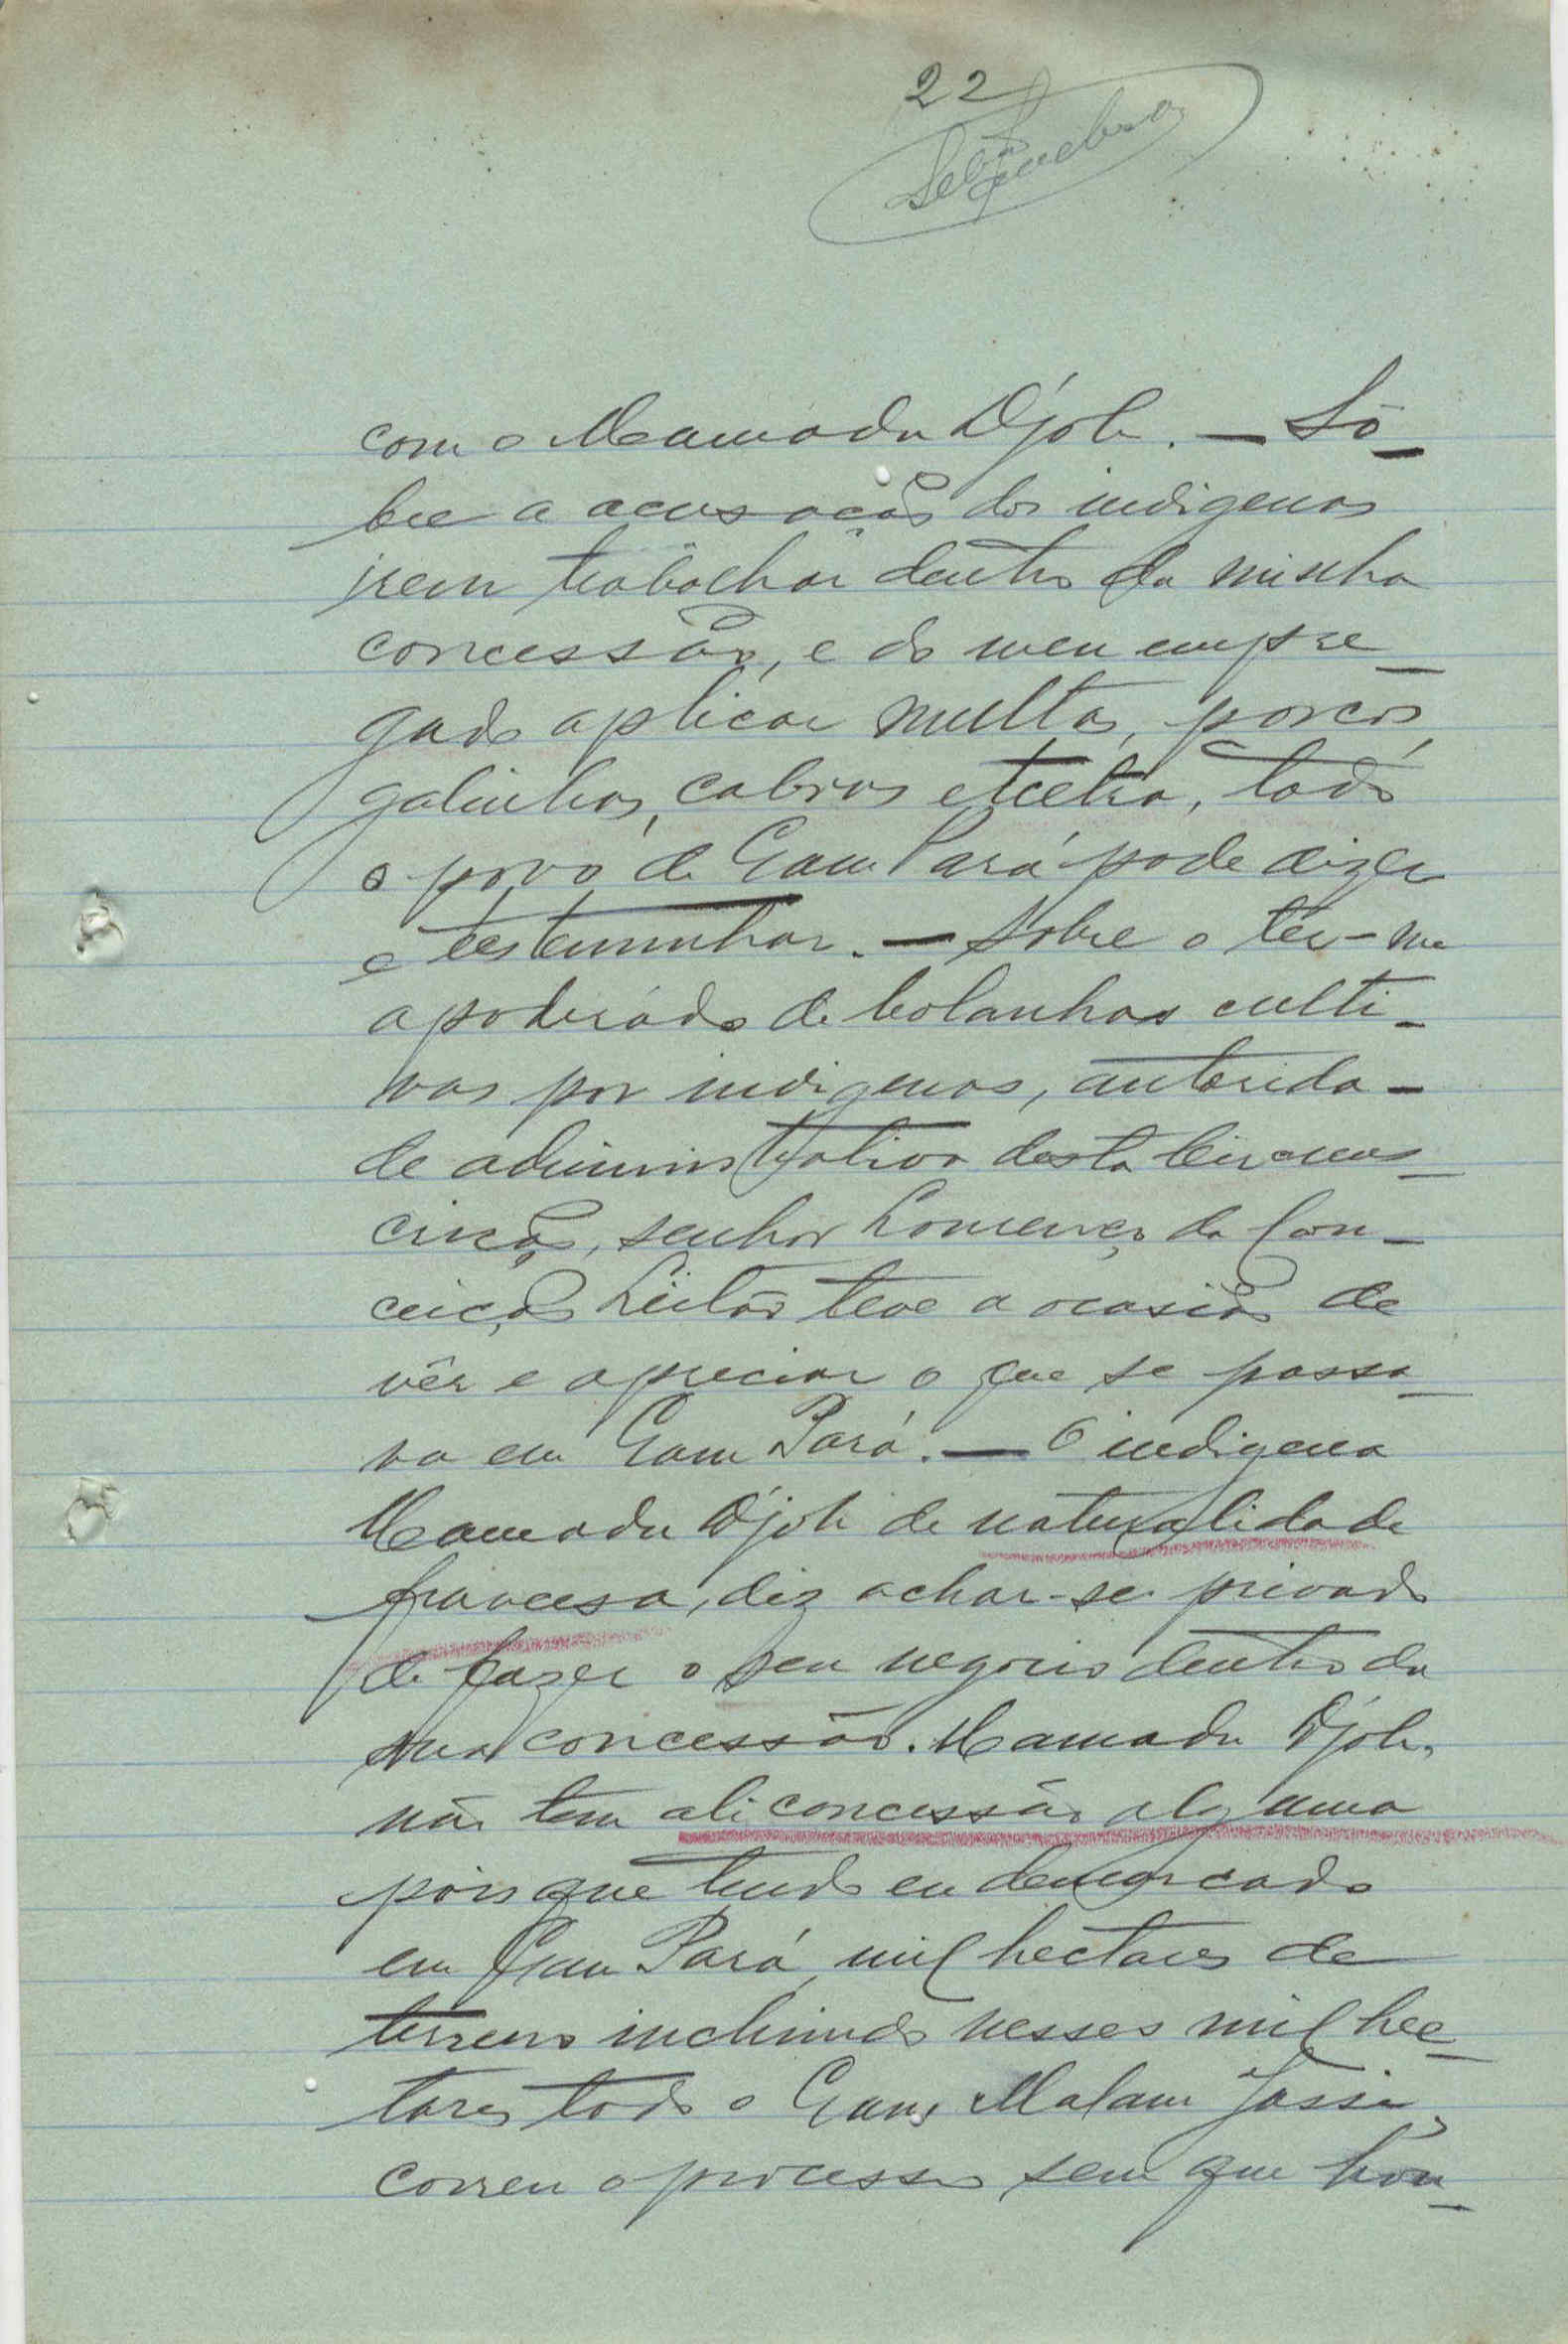 22
com o Mamadu Djob. — Sô-
bre a acusação dos indigenas
irem trabalhar dentro da minha
concessão, e do meu empre-
gado aplicar multas, porcos,
galinhas, cabras etcetra, todo
o povo de Gam Pará pode dizer
e testemunhar. — Sobre o têr-me
apoderado de bolanhas culti-
vas por indigenas, autorida-
de administrativa desta Circuns-
crição, senhor Lourenço da Con-
ceição Leitão teve a ocasião de
vêr e apreciar o que se passa-
va em Gam Pará. — O indigena
Mamadu Djob de naturalidade
francesa, diz achar-se privado
de fazer o seu negocio dentro da
sua concessão. Mamadu Djob,
não tem ali concessão alguma
pois que tendo eu demarcado
em Gam Pará, mil hectares de
terreno incluindo nesses mil hec-
tares todo o Gam Malam Jassi,
correu o processo sem que hou-